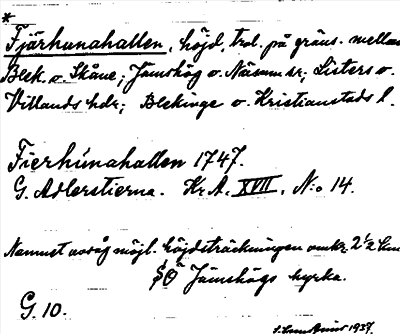 *
Fjärhunahallen, höjd, trol. på gräns. mellan
Blek. o. Skåne; Jämshög o. Näsum sr; Listers o.
Villands hdr; Blekinge o. Kristianstads l.
Fierhúnahallen 1747.
G. Adlerstierna. Kr. A. XVII, N:o 14.
Namnet avsåg möjl. höjdsträckningen omkr. 2 1/2 km
SÖ Jämshögs kyrka.
G. 10.
1937.